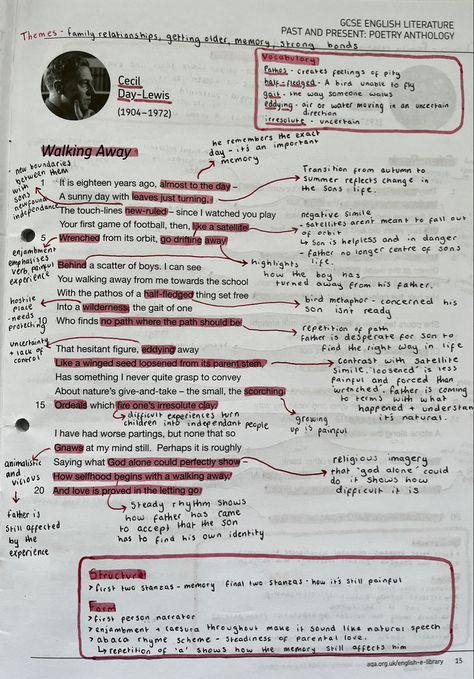 GCSE ENGLISH LITERATURE
PAST AND PRESENT: POETRY ANTHOLOGY
Themes - family relationships, getting older, memory, strong bonds
Cecil
Day-Lewis
(1904–1972)
Vocabulary
Pathos - creates feelings of pity
half-fledged - A bird unable to fly
gait - the way someone walks
eddying - air or water moving in an uncertain
direction
irresolute - uncertain
Walking Away
he remembers the exact
day - it's an important
memory
new boundaries
between them
with
sons
newfound
independence
Transition from autumn to
summer reflects change in
the sons life.
1 It is eighteen years ago, almost to the day –
A sunny day with leaves just turning,
The touch-lines new-ruled – since I watched you play
Your first game of football, then, like a satellite
5 Wrenched from its orbit, go drifting away
negative simile
- satellites arent meant to fall out
of orbit
↳ son is helpless and in danger
- father no longer centre of sons
life.
enjambment
emphasises
verb, painful
experience
highlights
how the boy has
turned away from his father.
Behind a scatter of boys. I can see
You walking away from me towards the school
With the pathos of a half-fledged thing set free
Into a wilderness, the gait of one
10 Who finds no path where the path should be.
hostile
place
- needs
protecting
bird metaphor - concerned his
son isnt ready
repetition of path
father is desperate for son to
find the right way in life
uncertainty
+ lack of
control
That hesitant figure, eddying away
Like a winged seed loosened from its parent stem,
Has something I never quite grasp to convey
About nature's give-and-take – the small, the scorching
15 Ordeals which fire one's irresolute clay.
contrast with satellite
simile. 'loosened' is less
painful and forced than
'wrenched'. father is coming
to terms with what
happened + understand
it's natural.
↳ difficult experiences turn
children into independant people
growing
up is painful
I have had worse partings, but none that so
Gnaws at my mind still. Perhaps it is roughly
Saying what God alone could perfectly show –
How selfhood begins with a walking away,
20 And love is proved in the letting go.
animalistic
and
vicious
father is
still affected
by the
experience
religious imagery
that 'god alone' could
do it shows how
difficult it is
steady rhythm shows
how father has come
to accept that the son
has to find his own identity
Structure
> first two stanzas - memory final two stanzas - how it's still painful
Form
> first person narrator
> enjambment + caesura throughout make it sound like natural speech
> abaca rhyme scheme - steadiness of parental love.
↳ repetition of 'a' shows how the memory still affects him
aqa.org.uk/english-e-library 15